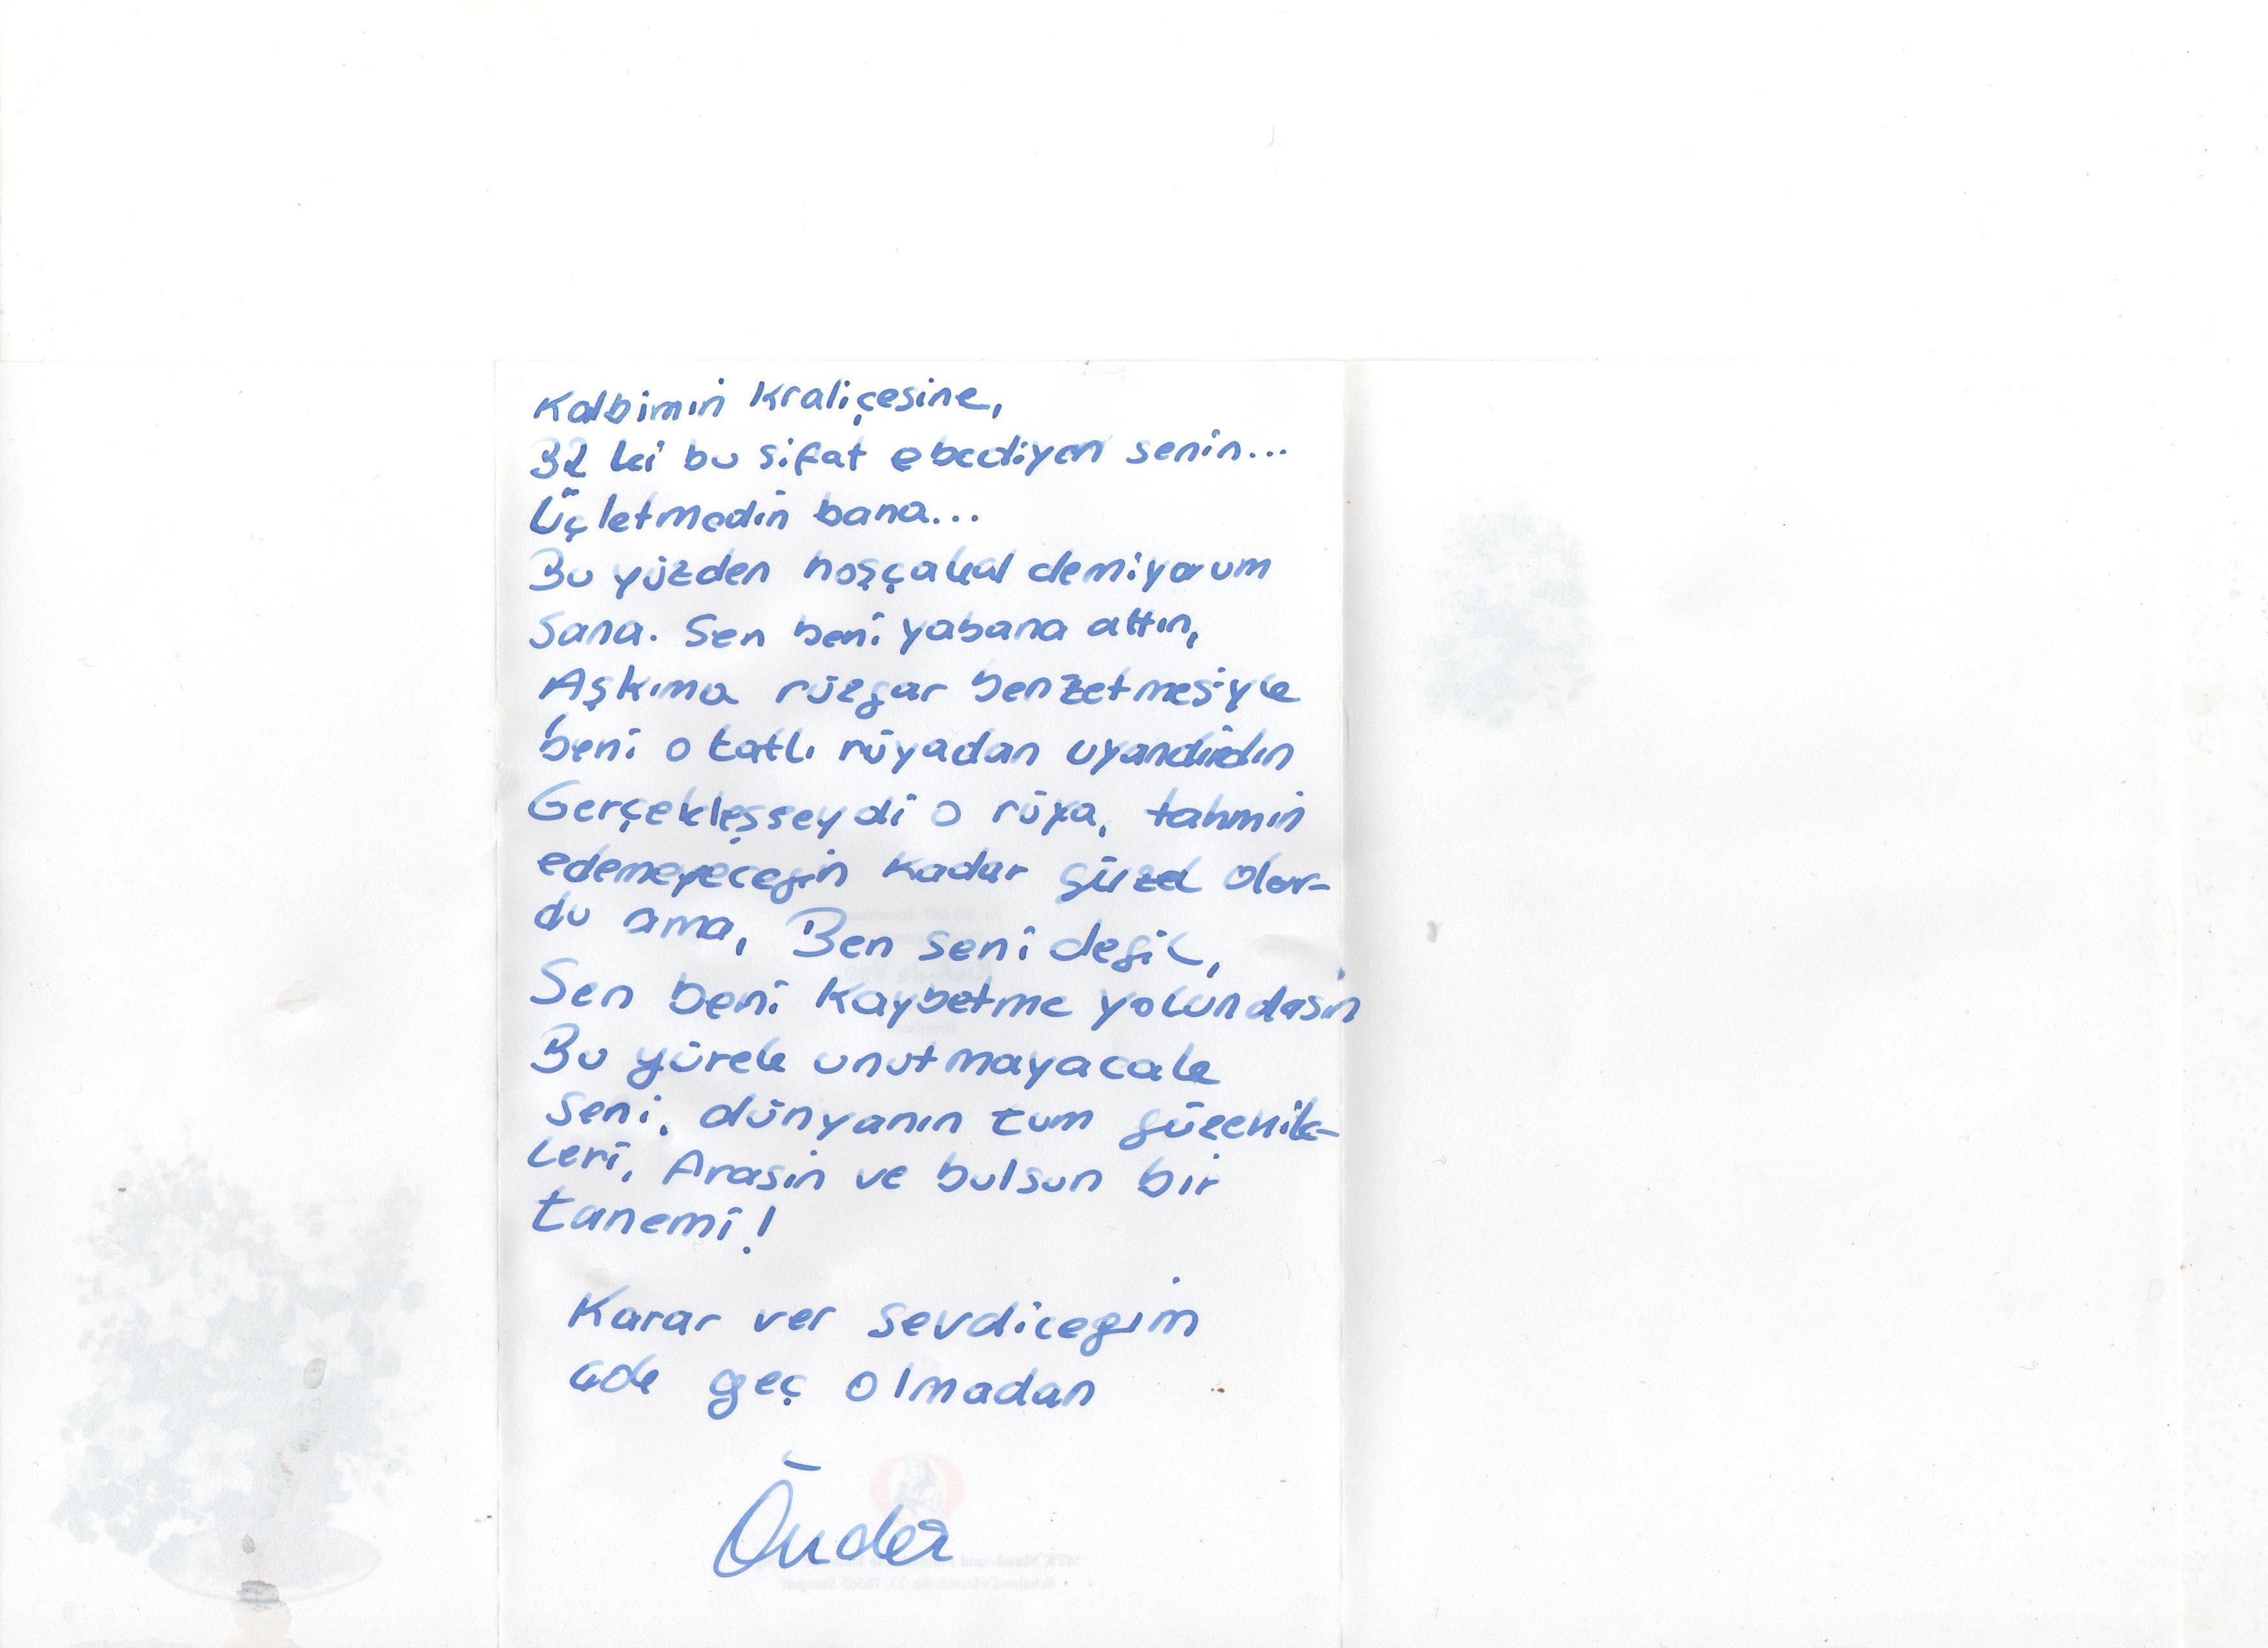 Kalbimin Kraliçesine,
Bil ki bu sifat ebediyen senin...
Üçletmedin bana...
Bu yüzden hoşçakal demiyorum
Sana. Sen beni yabana attın,
Aşkıma rüzgar benzetmesiyle
beni o tatlı rüyadan uyandırdın
Gerçekleşseydi o rüya, tahmin
edemeyecegin kadar güzel olur-
du ama, Ben seni degil,
Sen beni kaybetme yolundasin
Bu yürek unutmayacak
seni, dünyanın tum güzellik-
leri, Arasin ve bulsun bir
tanemi!
Karar ver sevdicegim
çok geç olmadan
Önder